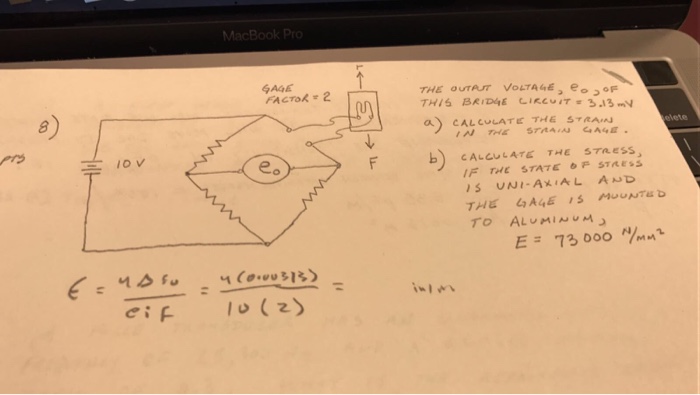 MacBook Pro
delete
8)
pts
GAGE
FACTOR = 2
F
10 V
e₀
F
THE OUTPUT VOLTAGE, e₀, OF
THIS BRIDGE CIRCUIT = 3.13 mV
a) CALCULATE THE STRAIN
IN THE STRAIN GAGE.
b) CALCULATE THE STRESS,
IF THE STATE OF STRESS
IS UNI-AXIAL AND
THE GAGE IS MOUNTED
TO ALUMINUM,
E = 73 000 N/mm²
ϵ = 4 Δ / ei F = 4(0.00313) / 10(2) =
in/in